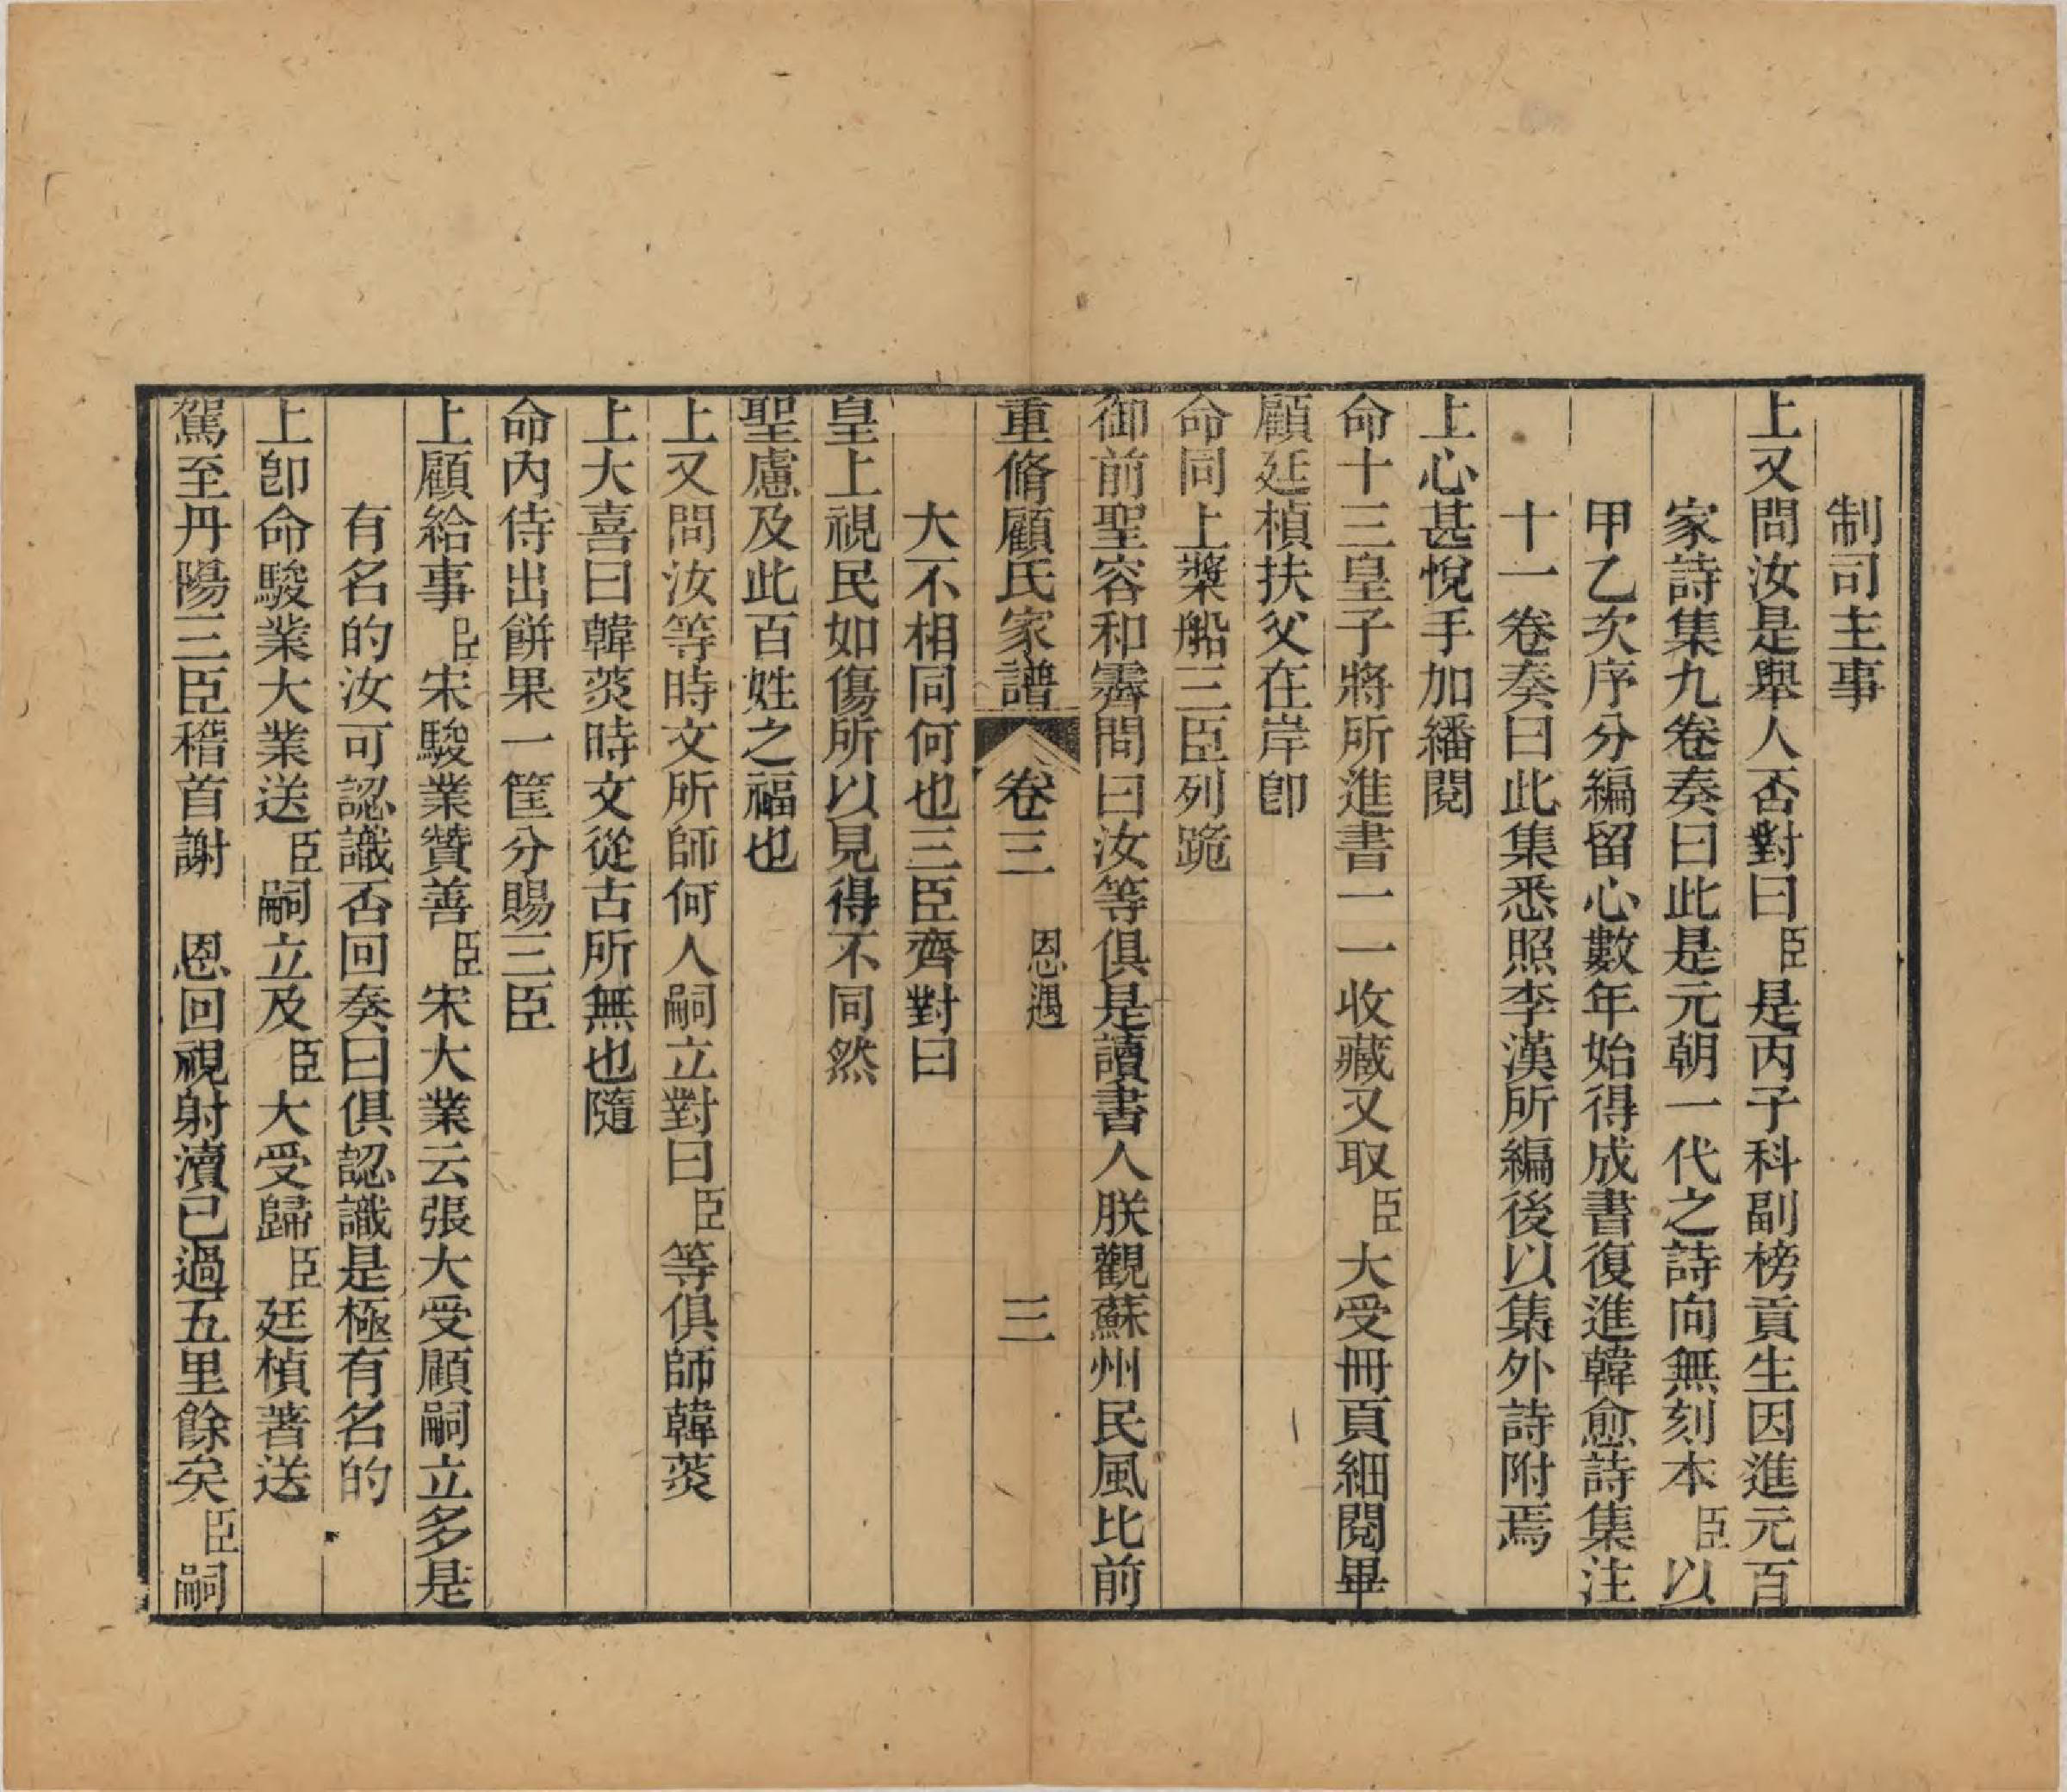 制司主事
上又問汝是舉人否對曰臣是丙子科副榜貢生因進元百
家詩集九卷奏曰此是元朝一代之詩向無刻本臣以
甲乙次序分編留心數年始得成書復進韓愈詩集注
十一卷奏曰此集悉照李漢所編後以集外詩附焉
上心甚悅手加繙閱
命十三皇子將所進書一一收藏又取臣大受冊頁細閱畢
顧廷楨扶父在岸卽
命同上槳船三臣列跪
御前聖容和霽問曰汝等俱是讀書人朕觀蘇州民風比前
重脩顧氏家譜 卷三 恩遇 三
大不相同何也三臣齊對曰
皇上視民如傷所以見得不同然
聖慮及此百姓之福也
上又問汝等時文所師何人嗣立對曰臣等俱師韓菼
上大喜曰韓菼時文從古所無也隨
命內侍出餅果一筐分賜三臣
上顧給事臣宋駿業贊善臣宋大業云張大受顧嗣立多是
有名的汝可認識否回奏曰俱認識是極有名的
上卽命駿業大業送臣嗣立及臣大受歸臣廷楨著送
駕至丹陽三臣稽首謝 恩回視射瀆已過五里餘矣臣嗣